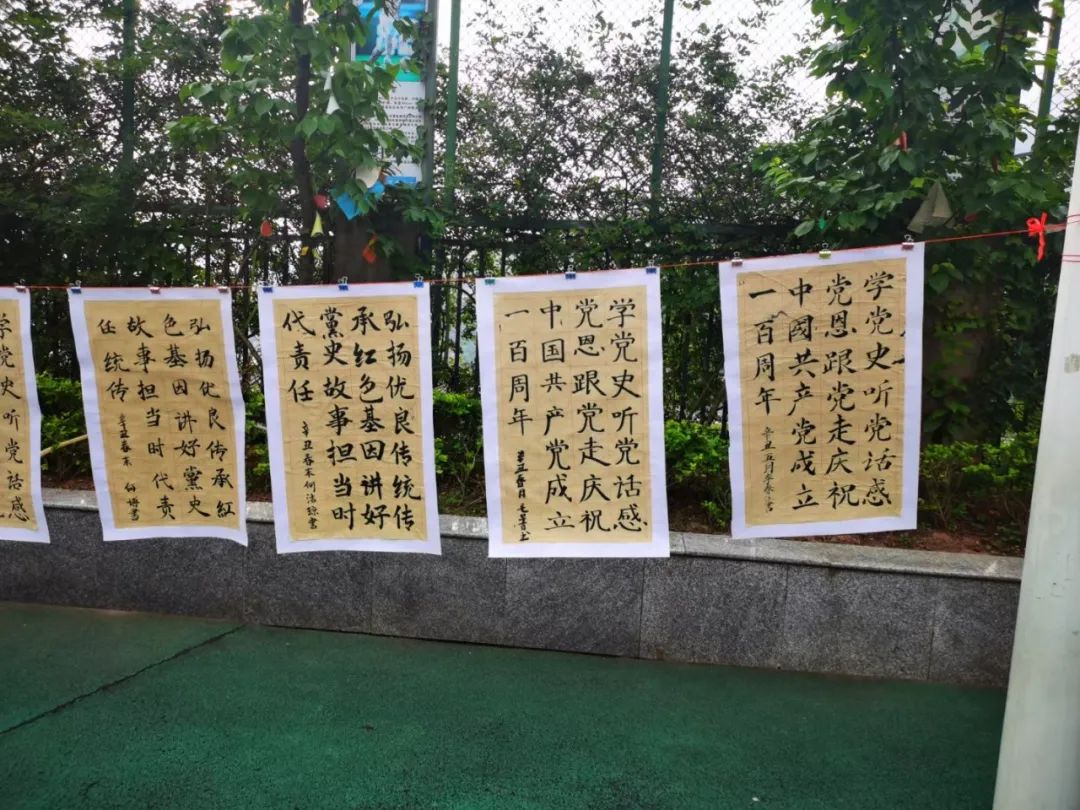 学党史听党话感
弘扬优良传承紅
色基因讲好黨史
故事担当时代责
任统传
辛丑春末 書
弘扬优良传统传
承红色基因讲好
黨史故事担当时
代责任
辛丑春末何 書
学党史听党话感
党恩跟党走庆祝
中国共产党成立
一百周年
辛丑春日
学党史听党话感
党恩跟党走庆祝
中國共产党成立
一百周年
辛丑五月 書